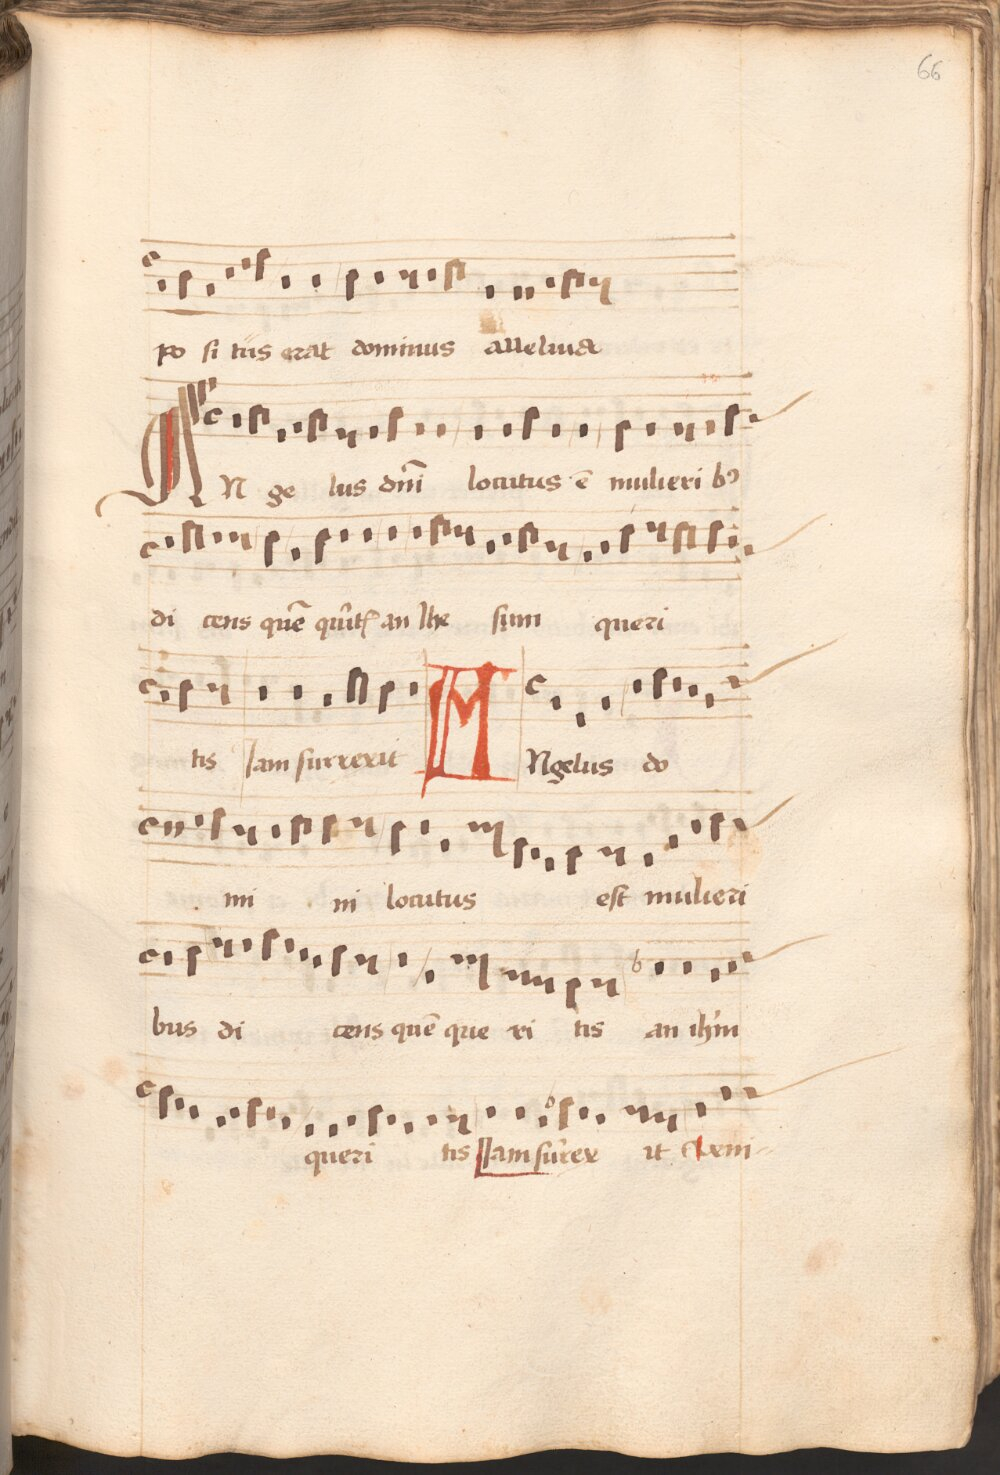 66
po si tus erat dominus alleluia
AN ge lus dñi locutus ē mulieri bꝰ
di cens quē quitis an Ihe sum queri
tis Iam surrexit ANgelus do
mi ni locutus est mulieri
bus di cens quē que ri tis an ihm
queri tis Iam surrex it et veni-